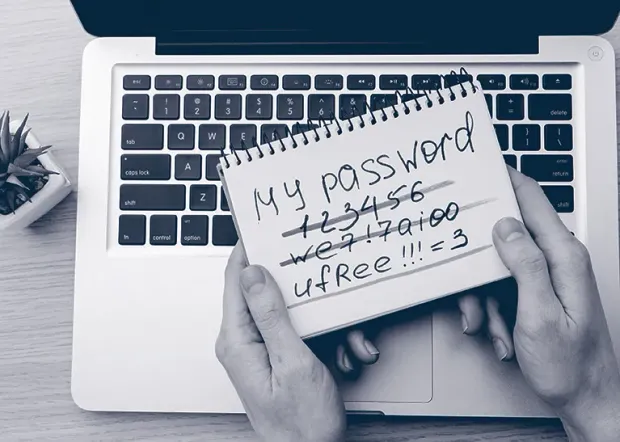 delete
tab Q W
caps lock A
return
shift Z
shift
fn control option
My password
123456
we7!7aioo
ufRee!!!=3